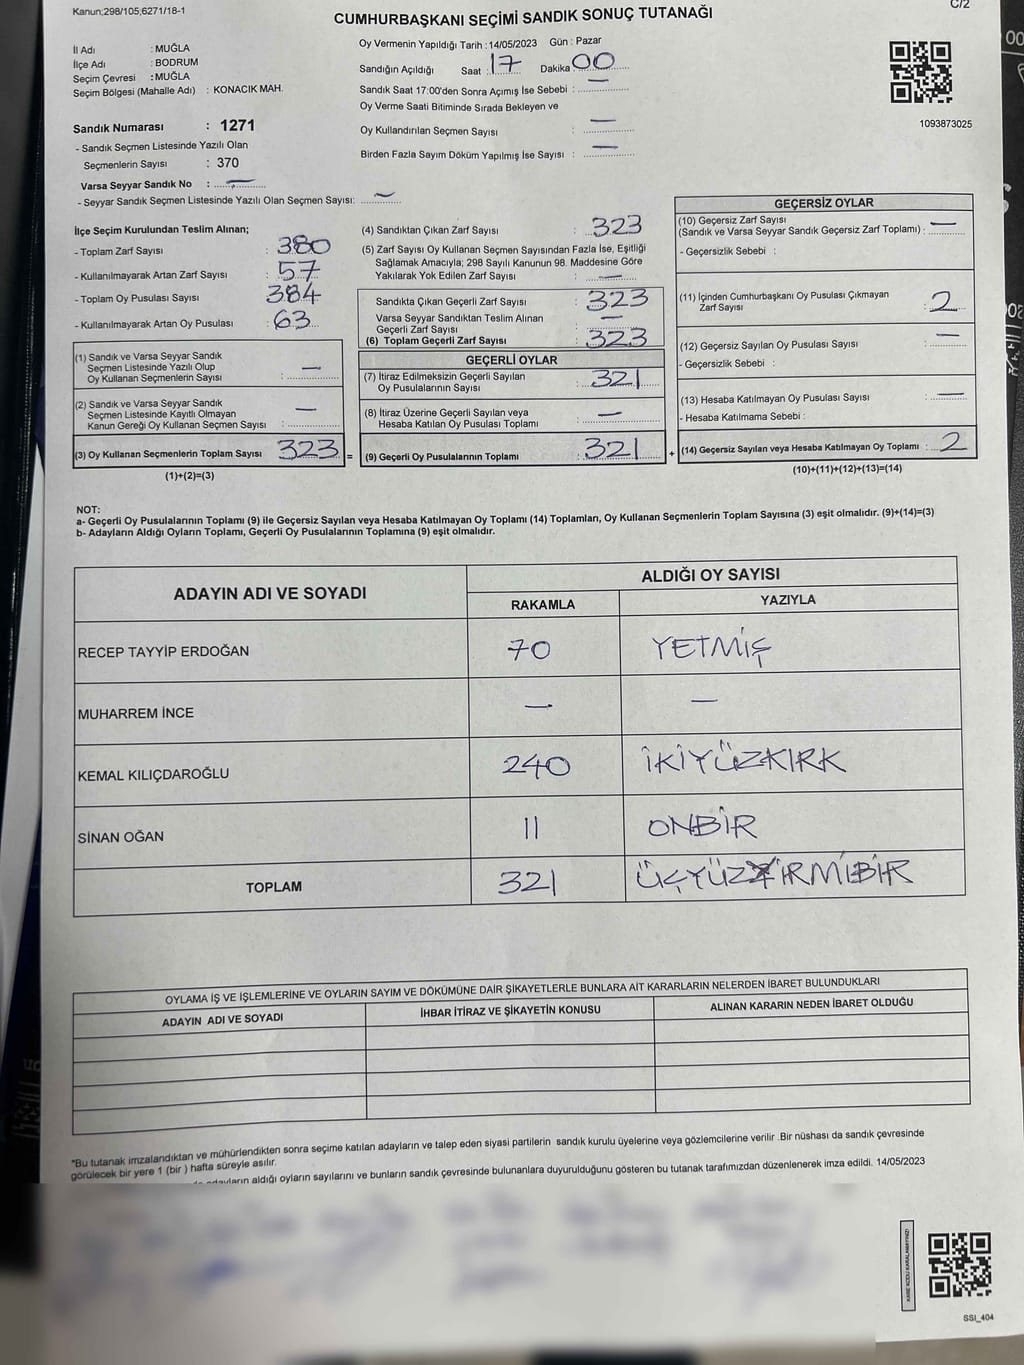 Kanun;298/105;6271/18-1
C/2
CUMHURBAŞKANI SEÇİMİ SANDIK SONUÇ TUTANAĞI
İl Adı : MUĞLA
İlçe Adı : BODRUM
Seçim Çevresi : MUĞLA
Seçim Bölgesi (Mahalle Adı) : KONACIK MAH.
Oy Vermenin Yapıldığı Tarih : 14/05/2023 Gün : Pazar
Sandığın Açıldığı Saat : 17 Dakika 00
Sandık Saat 17:00'den Sonra Açımış İse Sebebi : —
Oy Verme Saati Bitiminde Sırada Bekleyen ve
Oy Kullandırılan Seçmen Sayısı : —
Birden Fazla Sayım Döküm Yapılmış İse Sayısı : —
1093873025
Sandık Numarası : 1271
- Sandık Seçmen Listesinde Yazılı Olan
Seçmenlerin Sayısı : 370
Varsa Seyyar Sandık No : —
- Seyyar Sandık Seçmen Listesinde Yazılı Olan Seçmen Sayısı: —
İlçe Seçim Kurulundan Teslim Alınan;
- Toplam Zarf Sayısı : 380
- Kullanılmayarak Artan Zarf Sayısı : 57
- Toplam Oy Pusulası Sayısı : 384
- Kullanılmayarak Artan Oy Pusulası : 63
(1) Sandık ve Varsa Seyyar Sandık
Seçmen Listesinde Yazılı Olup
Oy Kullanan Seçmenlerin Sayısı : —
(2) Sandık ve Varsa Seyyar Sandık
Seçmen Listesinde Kayıtlı Olmayan
Kanun Gereği Oy Kullanan Seçmen Sayısı : —
(3) Oy Kullanan Seçmenlerin Toplam Sayısı 323 =
(1)+(2)=(3)
(4) Sandıktan Çıkan Zarf Sayısı : 323
(5) Zarf Sayısı Oy Kullanan Seçmen Sayısından Fazla İse, Eşitliği
Sağlamak Amacıyla; 298 Sayılı Kanunun 98. Maddesine Göre
Yakılarak Yok Edilen Zarf Sayısı : —
Sandıkta Çıkan Geçerli Zarf Sayısı : 323
Varsa Seyyar Sandıktan Teslim Alınan
Geçerli Zarf Sayısı : —
(6) Toplam Geçerli Zarf Sayısı : 323
GEÇERLİ OYLAR
(7) İtiraz Edilmeksizin Geçerli Sayılan
Oy Pusulalarının Sayısı : 321
(8) İtiraz Üzerine Geçerli Sayılan veya
Hesaba Katılan Oy Pusulası Toplamı : —
(9) Geçerli Oy Pusulalarının Toplamı : 321 +
GEÇERSİZ OYLAR
(10) Geçersiz Zarf Sayısı
(Sandık ve Varsa Seyyar Sandık Geçersiz Zarf Toplamı) : —
- Geçersizlik Sebebi :
(11) İçinden Cumhurbaşkanı Oy Pusulası Çıkmayan
Zarf Sayısı : 2
(12) Geçersiz Sayılan Oy Pusulası Sayısı : —
- Geçersizlik Sebebi :
(13) Hesaba Katılmayan Oy Pusulası Sayısı : —
- Hesaba Katılmama Sebebi :
(14) Geçersiz Sayılan veya Hesaba Katılmayan Oy Toplamı : 2
(10)+(11)+(12)+(13)=(14)
NOT:
a- Geçerli Oy Pusulalarının Toplamı (9) ile Geçersiz Sayılan veya Hesaba Katılmayan Oy Toplamı (14) Toplamları, Oy Kullanan Seçmenlerin Toplam Sayısına (3) eşit olmalıdır. (9)+(14)=(3)
b- Adayların Aldığı Oyların Toplamı, Geçerli Oy Pusulalarının Toplamına (9) eşit olmalıdır.
ADAYIN ADI VE SOYADI ALDIĞI OY SAYISI
RAKAMLA YAZIYLA
RECEP TAYYİP ERDOĞAN 70 YETMİŞ
MUHARREM İNCE — —
KEMAL KILIÇDAROĞLU 240 İKİYÜZKIRK
SİNAN OĞAN 11 ONBİR
TOPLAM 321 ÜÇYÜZYİRMİBİR
OYLAMA İŞ VE İŞLEMLERİNE VE OYLARIN SAYIM VE DÖKÜMÜNE DAİR ŞİKAYETLERLE BUNLARA AİT KARARLARIN NELERDEN İBARET BULUNDUKLARI
ADAYIN ADI VE SOYADI İHBAR İTİRAZ VE ŞİKAYETİN KONUSU ALINAN KARARIN NEDEN İBARET OLDUĞU
*Bu tutanak imzalandıktan ve mühürlendikten sonra seçime katılan adayların ve talep eden siyasi partilerin sandık kurulu üyelerine veya gözlemcilerine verilir .Bir nüshası da sandık çevresinde
görülecek bir yere 1 (bir ) hafta süreyle asılır.
adayların aldığı oyların sayılarını ve bunların sandık çevresinde bulunanlara duyurulduğunu gösteren bu tutanak tarafımızdan düzenlenerek imza edildi. 14/05/2023
SSI_404